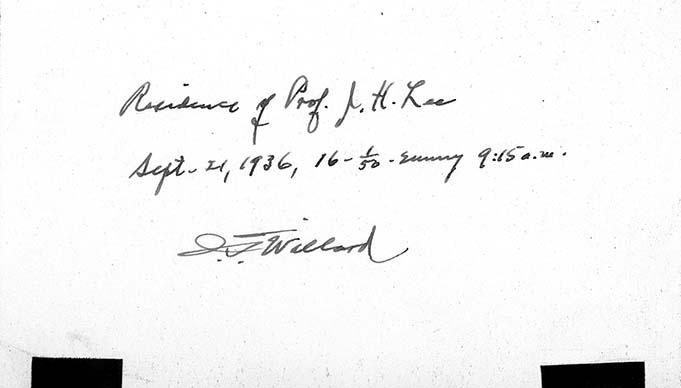 Residence of Prof. J. H. Lee
Sept. 21, 1936, 16 - 1/50 - sunny 9:15 a.m.
J. F. Willard